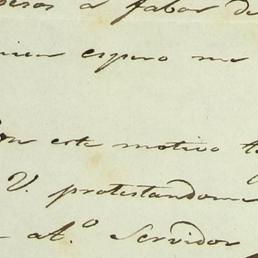 pesos a fabor de
quien espero me
Con este motivo t
V. protestandome
at.º Servidor